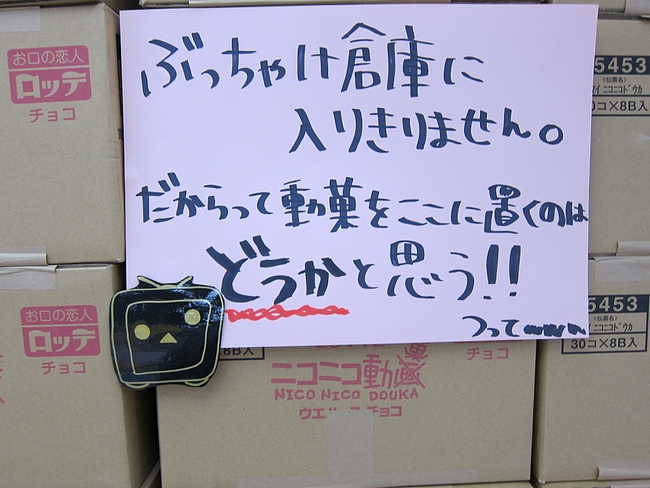 ぶっちゃけ倉庫に
入りきりません。
だからって動菓をここに置くのは
どうかと思う!!
つってwwwwn
お口の恋人
ロッテ
チョコ
5453
(伝票名)
ｲ ﾆｺﾆｺﾄﾞｳｶ
コ×8B入
お口の恋人
ロッテ
チョコ
8B入
ニコニコ動菓
NICO NICO DOUKA
チョコ
5453
(伝票名)
ｲ ﾆｺﾆｺﾄﾞｳｶ
30コ×8B入